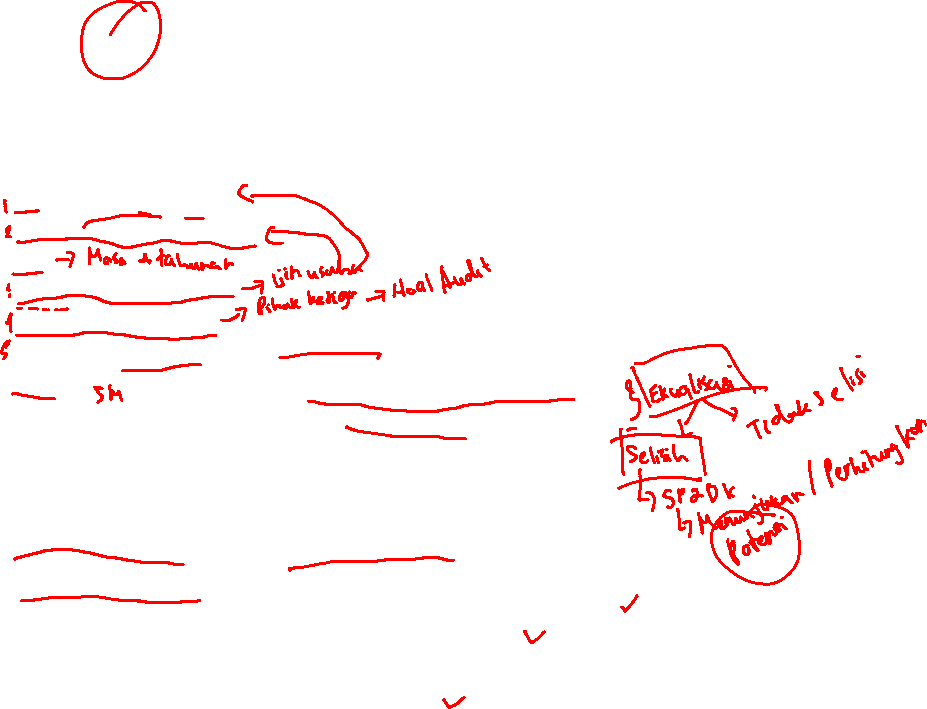 1
2
→ Masa + tahunan
→ ijin usaha
→ Pihak ketiga → Hasil Audit
4
5
5M
Ekualisasi
Tidak selisi
Selisih
↳ SP2DK
↳ Menunjukan / Perhitungkan
Potensi